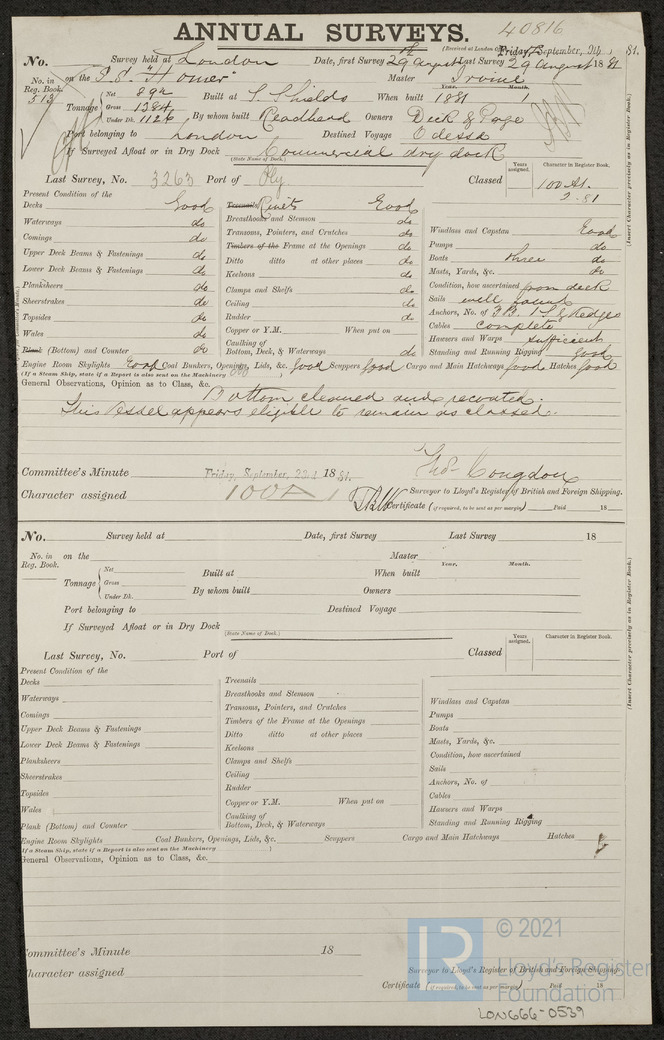 ANNUAL SURVEYS.
40816
(Received at London
Friday, September, 9th, 81.
No. Survey held at London Date, first Survey 29th August Last Survey 29 August 1881
No. in Reg. Book. 513 on the S.S. "Homer" Master Irvine
Tonnage Net 892 Gross 1384 Under Dk. 1126
Built at S. Shields When built Year. 1881 Month. 1
By whom built Readhead Owners Dick & Page
Port belonging to London Destined Voyage Odessa
If Surveyed Afloat or in Dry Dock Commercial dry dock
(State Name of Dock.)
Last Survey, No. 3263 Port of Ply Classed Years assigned. Character in Register Book.
100 A1.
2.81
(Insert Character precisely as in Register Book.)
Present Condition of the
Decks Good
Waterways do
Comings do
Upper Deck Beams & Fastenings do
Lower Deck Beams & Fastenings do
Planksheers do
Sheerstrakes do
Topsides do
Wales do
Plank (Bottom) and Counter do
Treenails Rivets Good
Breasthooks and Stemson do
Transoms, Pointers, and Crutches do
Timbers of the Frame at the Openings do
Ditto ditto at other places do
Keelsons do
Clamps and Shelfs do
Ceiling do
Rudder do
Copper or Y.M. When put on
Caulking of Bottom, Deck, & Waterways do
Windlass and Capstan Good
Pumps do
Boats three do
Masts, Yards, &c. do
Condition, how ascertained from deck
Sails well found
Anchors, No. of 3B. 1S & Kedges
Cables complete
Hawsers and Warps sufficient
Standing and Running Rigging good
Engine Room Skylights Good Coal Bunkers, Openings, Lids, &c. good Scuppers good Cargo and Main Hatchways good Hatches good
(If a Steam Ship, state if a Report is also sent on the Machinery )
General Observations, Opinion as to Class, &c.
Bottom cleaned and recoated.
This Vessel appears eligible to remain as classed.
Committee's Minute Friday, September, 23rd 1881.
Character assigned 100A1
Thos Congdon
Surveyor to Lloyd's Register of British and Foreign Shipping.
Certificate (if required, to be sent as per margin) Paid 18
No. Survey held at Date, first Survey Last Survey 18
No. in Reg. Book. on the Master
Tonnage Net Gross Under Dk.
Built at When built Year. Month.
By whom built Owners
Port belonging to Destined Voyage
If Surveyed Afloat or in Dry Dock
(State Name of Dock.)
Last Survey, No. Port of Classed Years assigned. Character in Register Book.
(Insert Character precisely as in Register Book.)
Present Condition of the
Decks
Waterways
Comings
Upper Deck Beams & Fastenings
Lower Deck Beams & Fastenings
Planksheers
Sheerstrakes
Topsides
Wales
Plank (Bottom) and Counter
Treenails
Breasthooks and Stemson
Transoms, Pointers, and Crutches
Timbers of the Frame at the Openings
Ditto ditto at other places
Keelsons
Clamps and Shelfs
Ceiling
Rudder
Copper or Y.M. When put on
Caulking of Bottom, Deck, & Waterways
Windlass and Capstan
Pumps
Boats
Masts, Yards, &c.
Condition, how ascertained
Sails
Anchors, No. of
Cables
Hawsers and Warps
Standing and Running Rigging
Engine Room Skylights Coal Bunkers, Openings, Lids, &c. Scuppers Cargo and Main Hatchways Hatches
(If a Steam Ship, state if a Report is also sent on the Machinery )
General Observations, Opinion as to Class, &c.
Committee's Minute 18
Character assigned
Surveyor to Lloyd's Register of British and Foreign Shipping
Certificate (if required, to be sent as per margin) Paid 18
LR © 2021
Lloyd's Register
Foundation
LON666-0539